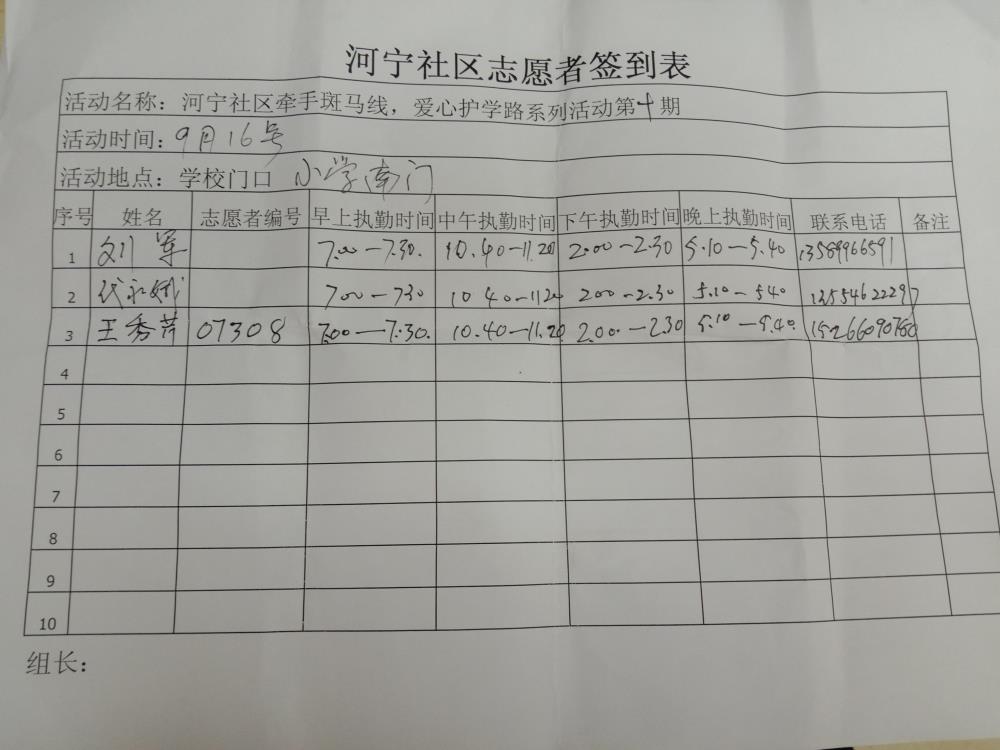 河宁社区志愿者签到表
活动名称：河宁社区牵手斑马线，爱心护学路系列活动第十期
活动时间：9月16号
活动地点：学校门口 小学南门
序号 姓名 志愿者编号 早上执勤时间 中午执勤时间 下午执勤时间 晚上执勤时间 联系电话 备注
1 刘军 7.00—7.30. 10.40—11.20 2.00—2.30 5.10—5.40 13589966591
2 代永娥 700—730 1040—1120 200—2.30 5.10—540 13554622297
3 王秀芹 07308 7.00—7.30. 10.40—11.20 2.00.—230 5.10—5.40. 15266090760
4
5
6
7
8
9
10
组长：